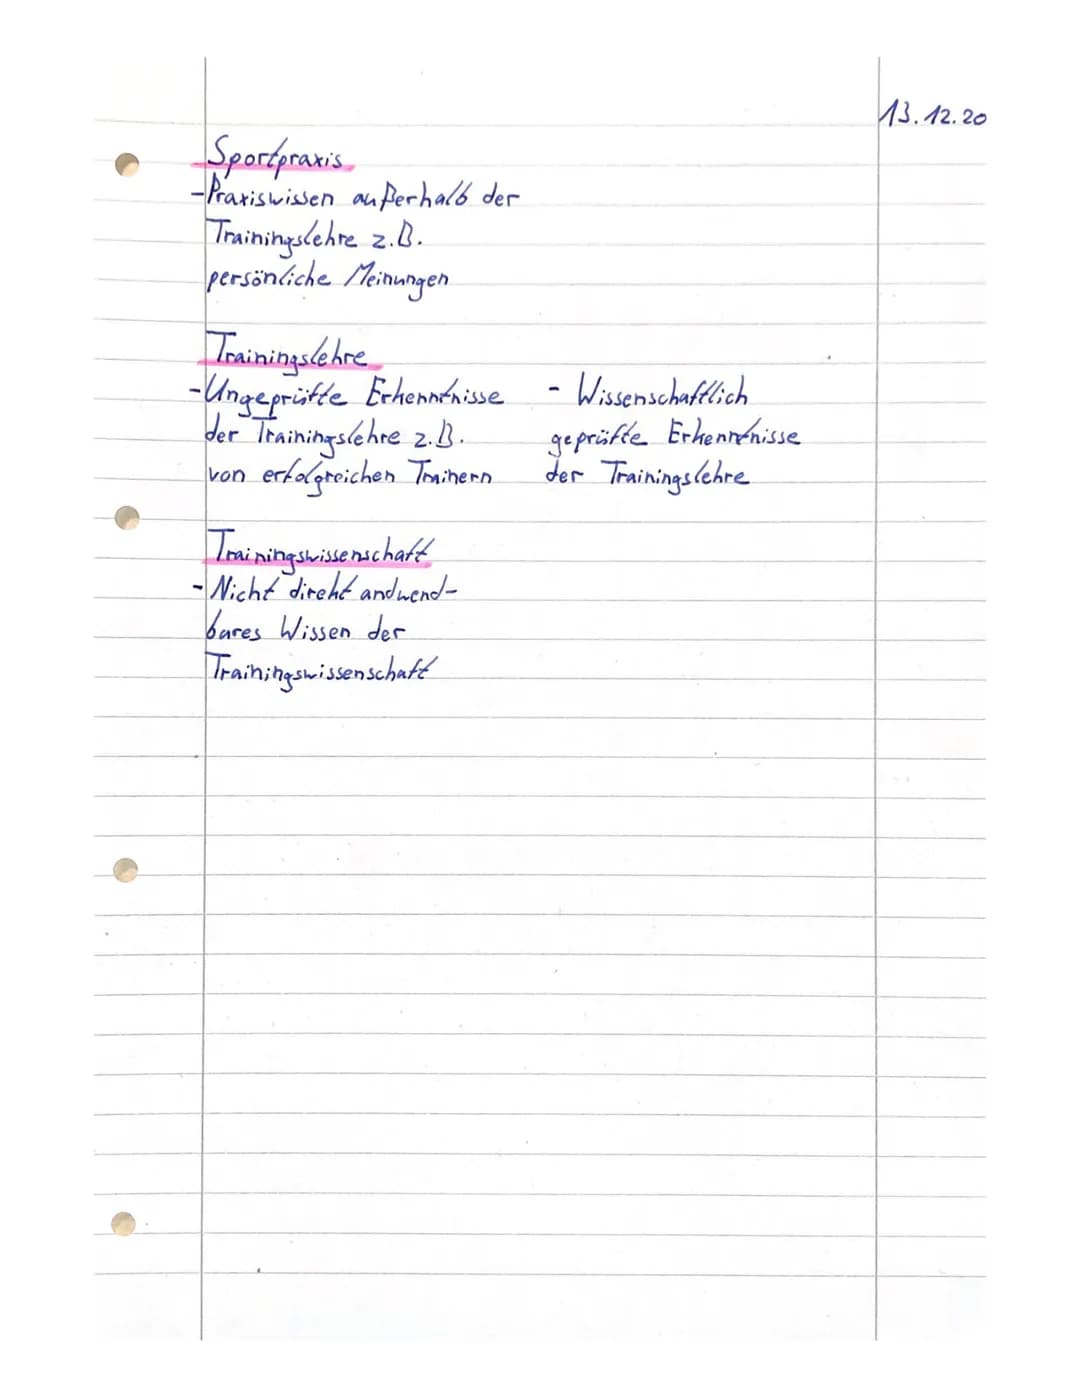 13.12.20
Sportpraxis
-Praxiswissen außerhalb der
Trainingslehre z.B.
persönliche Meinungen
Trainingslehre
-Ungeprüfte Erkenntnisse
der Trainingslehre z.B.
von erfolgreichen Trainern
- Wissenschaftlich
geprüfte Erkenntnisse
der Trainingslehre
Trainingswissenschaft
-Nicht direkt andwend-
bares Wissen der
Trainingswissenschaft